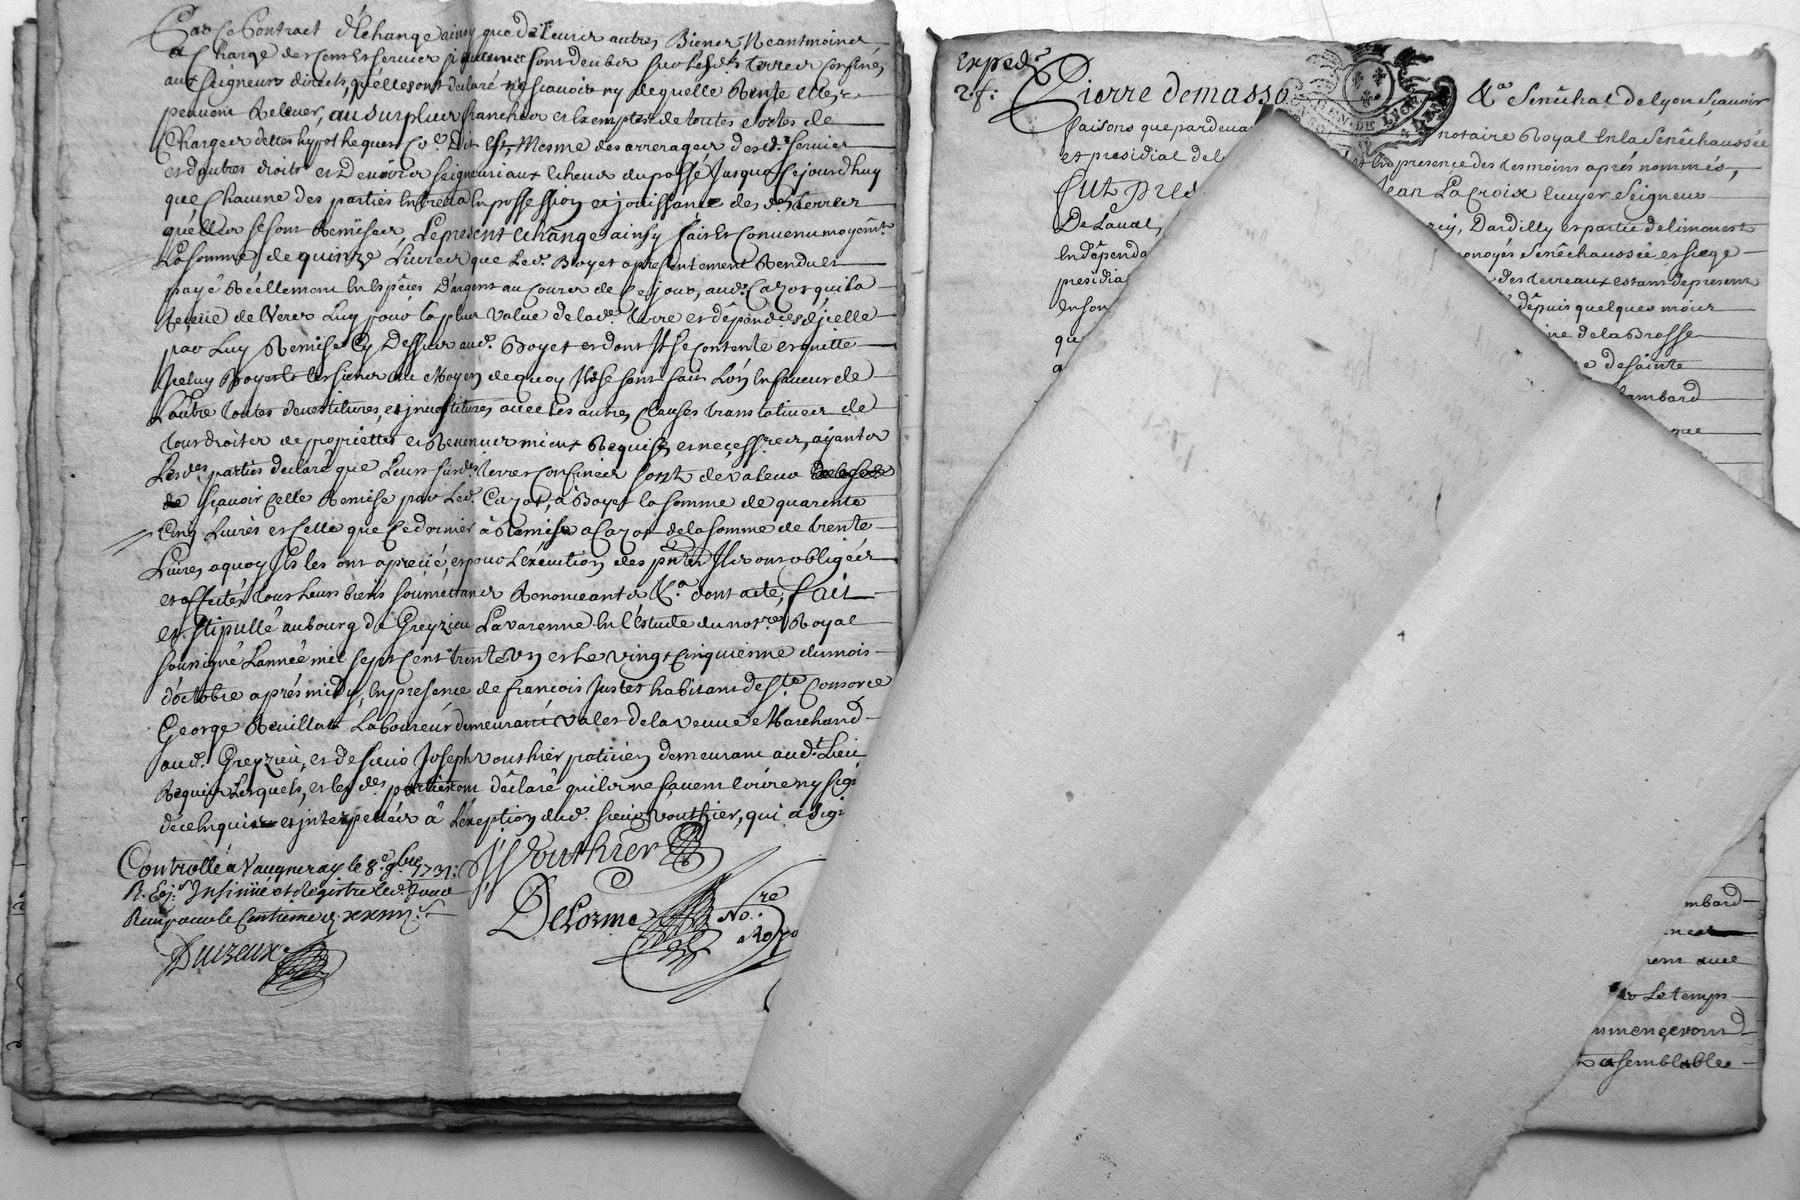 Par ce Contract d'Echange ainsy que de leurs autres Biens Neantmoins
a Charge des Cens et Servis sy aucuns sont deubs sur lesd.es terres Confinés
aux Seigneurs directs, qu'elles ont declaré ne scavoir ny de quelle Rente elles
peuvent Relever, au surplus franches et Exemptes de toutes sortes de
Charges dettes hypotheques Co.e Dit Est, Mesme des arrerages desd. Servis
et d'autres droits et Devoirs seigneuriaux Echeus du passé Jusqua Cejourdhuy
que Chacune des parties Entrera En possession et jouissance des d.es terres
quelles se sont Remises, Le present Echange ainsy fait et Convenu moyen.t
La somme de quinze Livres que Led. Boyet a presentement Rendu et
payé Réellement En Espèces D'argent au Cours de Ce jour, aud. Cazot qui la
Receue de Vers Luy pour la plus Value de lad.e terre et dépendces d'jcelle
par Luy Remise Cy Dessus aud. Boyet et dont Il se Contente et quitte
Jceluy Boyet et les siens au Moyen de quoy Ils se sont fait L'un En faveur de
L'autre toutes devestitures, et jnvestitures avec les autres Clauses translatives de
tous droits de proprietté et Revenus mieux Requises et necess.res, ayants
Lesd.es parties declaré que Leurs susd.es terres Confinées sont de valeur
de scavoir Celle Remise par Led. Cazot, à Boyet la somme de quarente
Cinq Livres et Celle que Ce dernier à Remise a Cazot de la somme de trente
Livres a quoy Ils les ont aprecié, et pour L'exécution des pntes Ils ont obligées
et affectés tous Leurs biens soumettants Renonceants &.a dont acte, fait
et stipullé au bourg de Greyzieu Lavarenne En l'Estude du not.re Royal
soussigné L'année mil sept Cent trente Un et Le vingt Cinquieme du mois
d'octobre après midy, En presence de francois Justet habitant de S.te Consorce
George Revillat Laboureur demeurant Valet de la veuve Marchand
aud. Greyzieu, et de sieur Joseph Vouthier paticien demeurant aud.t Lieu
Requis Lesquels, et les d.es parties ont déclaré qu'ils ne scavent Ecrire ny sig
de ce Enquis et jnterpellés à L'exeption dud. sieur Vouthier, qui a sig
J Vouthier
Controllé a Vaugneray le 8.e 9bre 1731.
R. Insinüé et Registre led. Jour
Receu pour le Centieme
Duizeux
DeLorme No.re
Roy
Exped.e
2.f:
Pierre demasso
&.a Senéchal de Lyon Scavoir
faisons que pardeva
notaire Royal En la Senéchaussée
et presidial de
En presence des tesmoins aprés nommés,
fut pres
Jean LaCroix Ecuyer Seigneur
De Laval,
Dardilly et partie de limonest
En dépenda
Senéchaussée et Siege
presidia
des terreaux estant de present
En son
dépuis quelques mois
qu
de la Brosse
a
de sainte
Lambard
que
mbard
avec
Le temps
mmenceront
a semblable